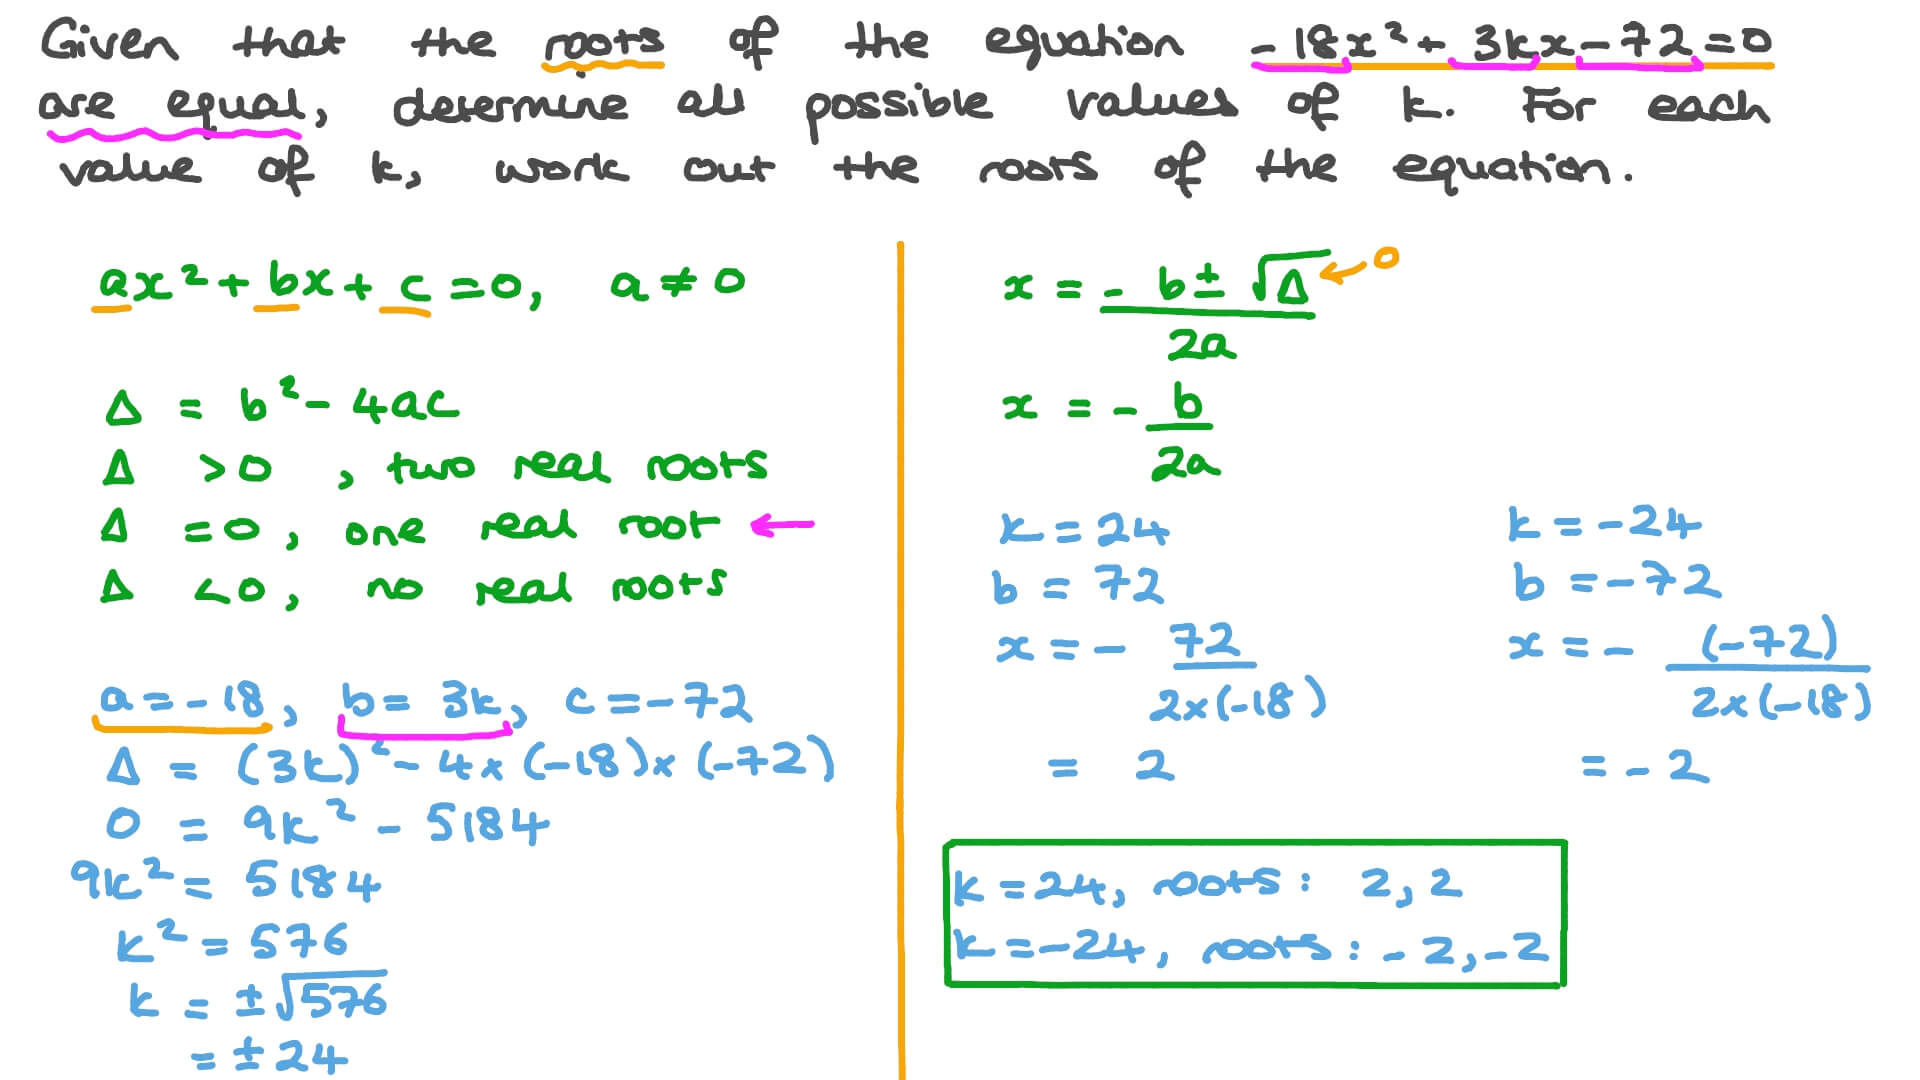 Given that the roots of the equation -18x² + 3kx - 72 = 0
are equal, determine all possible values of k. For each
value of k, work out the roots of the equation.
ax² + bx + c = 0, a ≠ 0
Δ = b² - 4ac
Δ > 0, two real roots
Δ = 0, one real root ←
Δ < 0, no real roots
a = -18, b = 3k, c = -72
Δ = (3k)² - 4 × (-18) × (-72)
0 = 9k² - 5184
9k² = 5184
k² = 576
k = ±√576
= ±24
x = (-b ± √Δ) / 2a ← 0
x = - b / 2a
k = 24
b = 72
x = - 72 / 2×(-18)
= 2
k = -24
b = -72
x = - (-72) / 2×(-18)
= -2
k = 24, roots: 2, 2
k = -24, roots: -2, -2